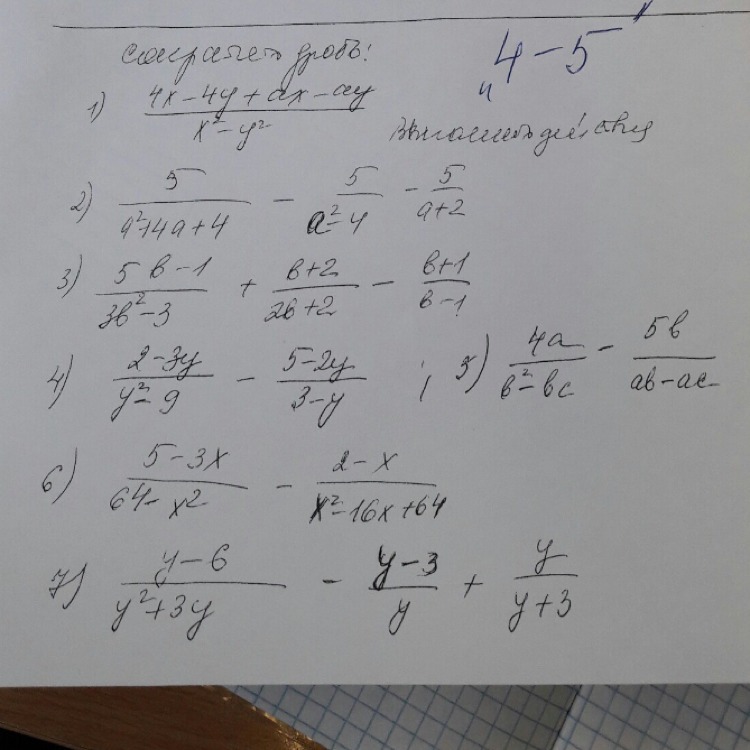 сократить дробь!
"4-5"
1) (4x-4y+ax-ay)/(x²-y²)
Выполнить действия
2) 5/(a²+4a+4) - 5/(a²-4) - 5/(a+2)
3) (5b-1)/(3b²-3) + (b+2)/(2b+2) - (b+1)/(b-1)
4) (2-3y)/(y²-9) - (5-2y)/(3-y) ; 5) 4a/(b²-bc) - 5b/(ab-ac)
6) (5-3x)/(64-x²) - (2-x)/(x²-16x+64)
7) (y-6)/(y²+3y) - (y-3)/y + y/(y+3)